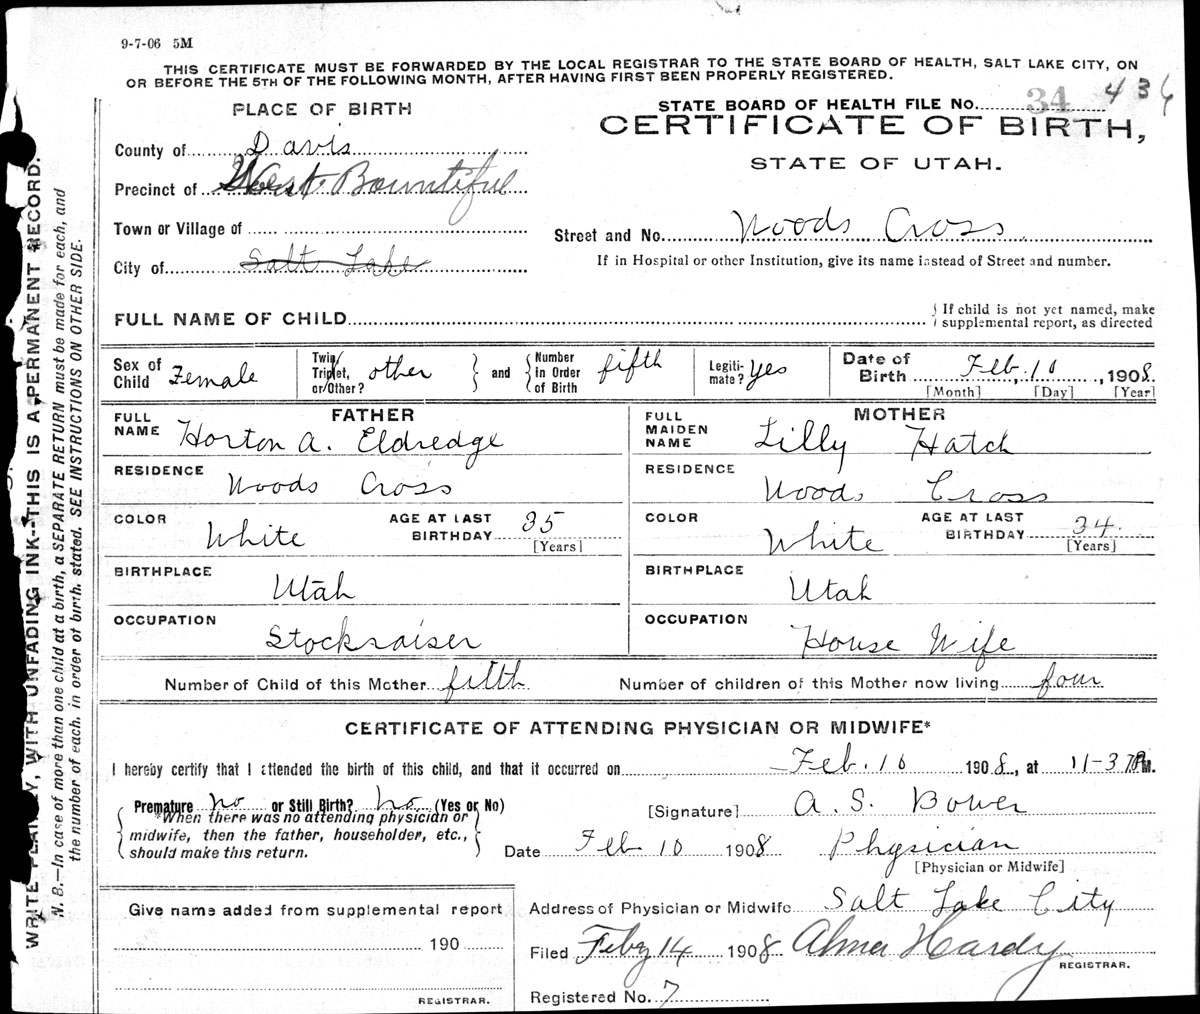 9-7-06 5M
THIS CERTIFICATE MUST BE FORWARDED BY THE LOCAL REGISTRAR TO THE STATE BOARD OF HEALTH, SALT LAKE CITY, ON
OR BEFORE THE 5TH OF THE FOLLOWING MONTH, AFTER HAVING FIRST BEEN PROPERLY REGISTERED.
PLACE OF BIRTH
County of Davis
Precinct of West Bountiful
Town or Village of
City of Salt Lake
STATE BOARD OF HEALTH FILE No. 34 436
CERTIFICATE OF BIRTH,
STATE OF UTAH.
Street and No. Woods Cross
If in Hospital or other Institution, give its name instead of Street and number.
FULL NAME OF CHILD
{ If child is not yet named, make
supplemental report, as directed
Sex of Child Female
Twin, Triplet, or Other? other } and { Number in Order of Birth fifth
Legitimate? yes
Date of Birth Feb. 10, 1908.
[Month] [Day] [Year]
FATHER
FULL NAME Horton A. Eldredge
RESIDENCE Woods Cross
COLOR White AGE AT LAST BIRTHDAY 35 [Years]
BIRTHPLACE Utah
OCCUPATION Stockraiser
MOTHER
FULL MAIDEN NAME Lilly Hatch
RESIDENCE Woods Cross
COLOR White AGE AT LAST BIRTHDAY 34 [Years]
BIRTHPLACE Utah
OCCUPATION House Wife
Number of Child of this Mother fifth Number of children of this Mother now living four
CERTIFICATE OF ATTENDING PHYSICIAN OR MIDWIFE*
I hereby certify that I attended the birth of this child, and that it occurred on Feb. 10 1908, at 11-37 M.
Premature no or Still Birth? no (Yes or No)
*When there was no attending physician or
midwife, then the father, householder, etc.,
should make this return.
[Signature] A. S. Bower
Date Feb 10 1908 Physician
[Physician or Midwife]
Address of Physician or Midwife Salt Lake City
Filed Feby 14 1908 Alma Hardy
REGISTRAR.
Registered No. 7
Give name added from supplemental report
190
REGISTRAR.
WRITE PLAINLY, WITH UNFADING INK--THIS IS A PERMANENT RECORD.
N. B.—In case of more than one child at a birth, a SEPARATE RETURN must be made for each, and
the number of each, in order of birth, stated. SEE INSTRUCTIONS ON OTHER SIDE.